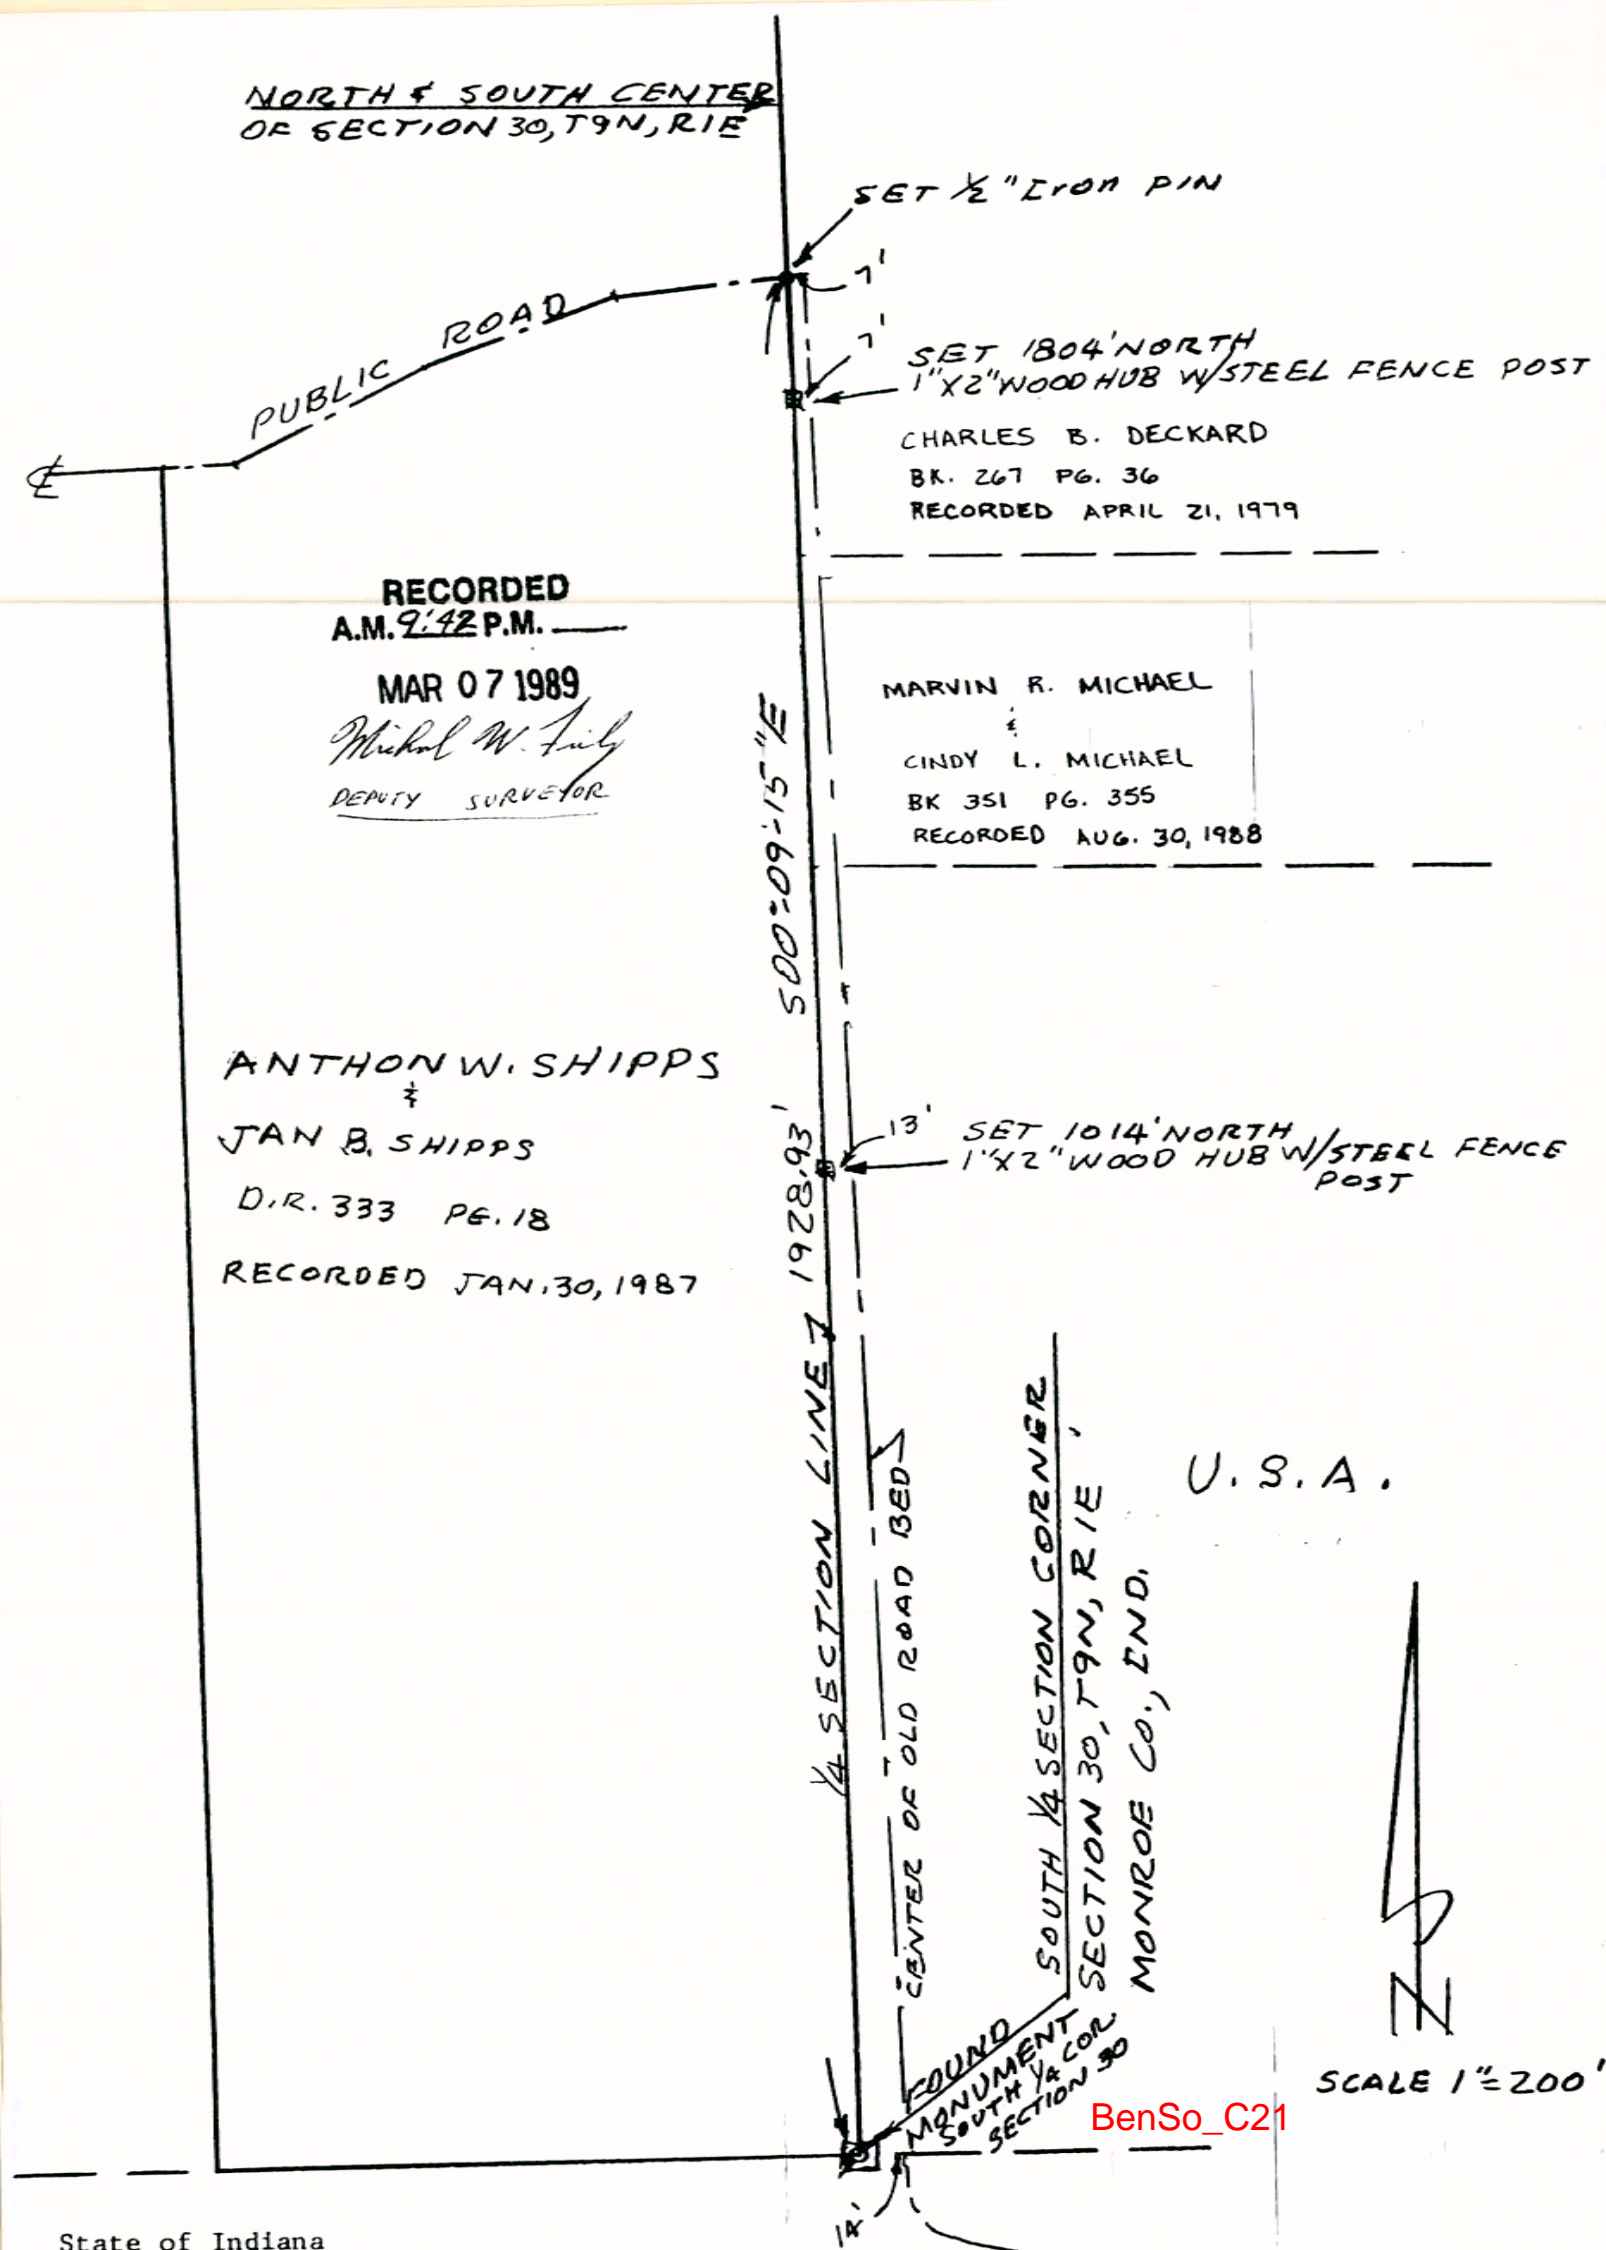 NORTH & SOUTH CENTER
OF SECTION 30, T9N, R1E
SET 1/2" Iron PIN
7'
7'
PUBLIC ROAD
SET 1804' NORTH
1"X2" WOOD HUB W/STEEL FENCE POST
CHARLES B. DECKARD
BK. 267 PG. 36
RECORDED APRIL 21, 1979
℄
RECORDED
A.M. 9:42 P.M.
MAR 07 1989
DEPUTY SURVEYOR
MARVIN R. MICHAEL
&
CINDY L. MICHAEL
BK 351 PG. 355
RECORDED AUG. 30, 1988
ANTHON W. SHIPPS
&
JAN B. SHIPPS
D.R. 333 PG. 18
RECORDED JAN. 30, 1987
1/4 SECTION LINE 1928.93' S00°-09'-15"E
13'
SET 1014' NORTH
1"X2" WOOD HUB W/STEEL FENCE
POST
CENTER OF OLD ROAD BED
SOUTH 1/4 SECTION CORNER
SECTION 30, T9N, R1E
MONROE CO., IND.
U.S.A.
N
SCALE 1"=200'
FOUND
MONUMENT
SOUTH 1/4 COR.
SECTION 30
BenSo_C21
State of Indiana